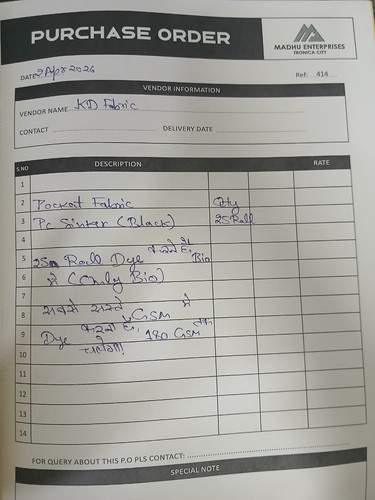 PURCHASE ORDER
MADHU ENTERPRISES
TRONICA CITY
DATE 9 Apr 2026
Ref: 414
VENDOR INFORMATION
VENDOR NAME KD Fabric
CONTACT
DELIVERY DATE
S.NO DESCRIPTION RATE
1
2 Pocket Fabric Qty
3 Pc Sinker (Black) 25 Roll
4
5 25 Roll Dye करने है। Bio
6 में (Only Bio)
7
8 सबसे सस्ते GSM में
9 Dye करने हैं, 180 GSM तक
10 चलेगा।
11
12
13
14
FOR QUERY ABOUT THIS P.O PLS CONTACT:
SPECIAL NOTE